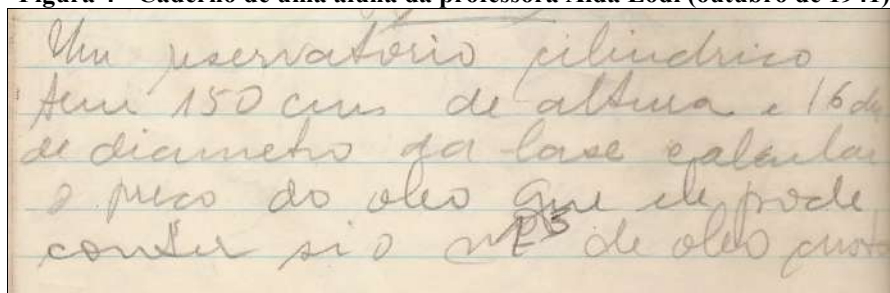 Figura 4 – Caderno de uma aluna da professora Alda Lodi (outubro de 1941)
Um reservatorio cilindrico
tem 150 cms de altura e 16 dm
de diametro da base calcular
o preco do oleo que ele pode
conter si o de oleo custa